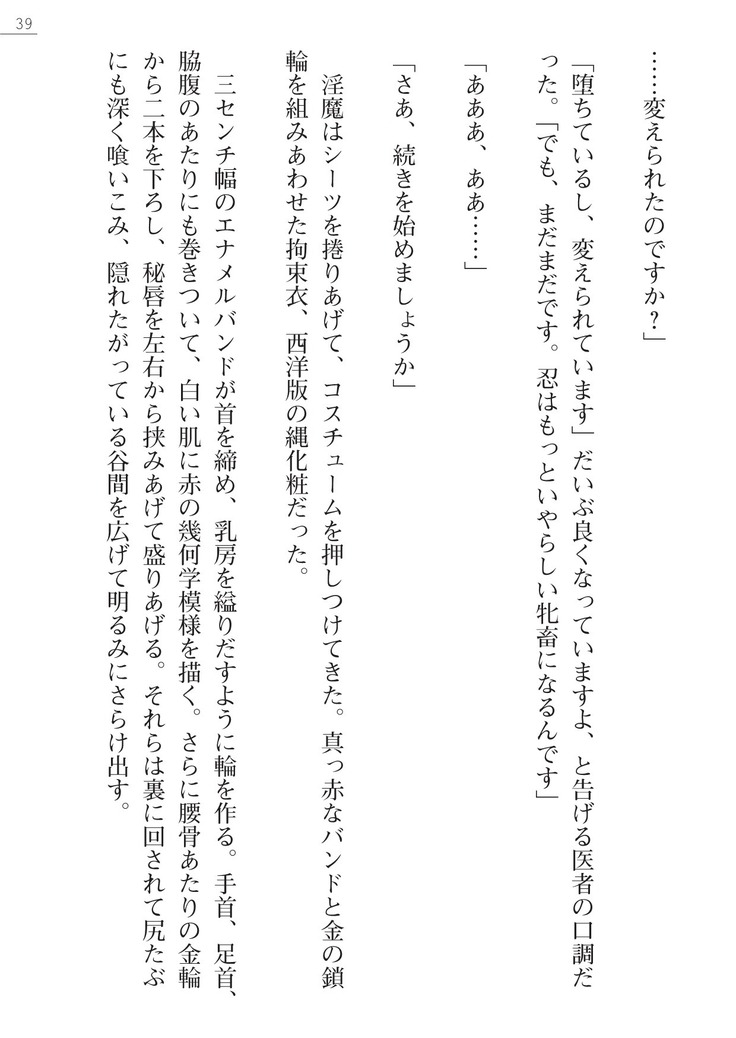 39
……変えられたのですか？」
「堕ちているし、変えられています」だいぶ良くなっていますよ、と告げる医者の口調だ
った。「でも、まだまだです。忍はもっといやらしい牝畜になるんです」
「あああ、ああ……」
「さあ、続きを始めましょうか」
淫魔はシーツを捲りあげて、コスチュームを押しつけてきた。真っ赤なバンドと金の鎖
輪を組みあわせた拘束衣、西洋版の縄化粧だった。
三センチ幅のエナメルバンドが首を締め、乳房を縊りだすように輪を作る。手首、足首、
脇腹のあたりにも巻きついて、白い肌に赤の幾何学模様を描く。さらに腰骨あたりの金輪
から二本を下ろし、秘唇を左右から挟みあげて盛りあげる。それらは裏に回されて尻たぶ
にも深く喰いこみ、隠れたがっている谷間を広げて明るみにさらけ出す。